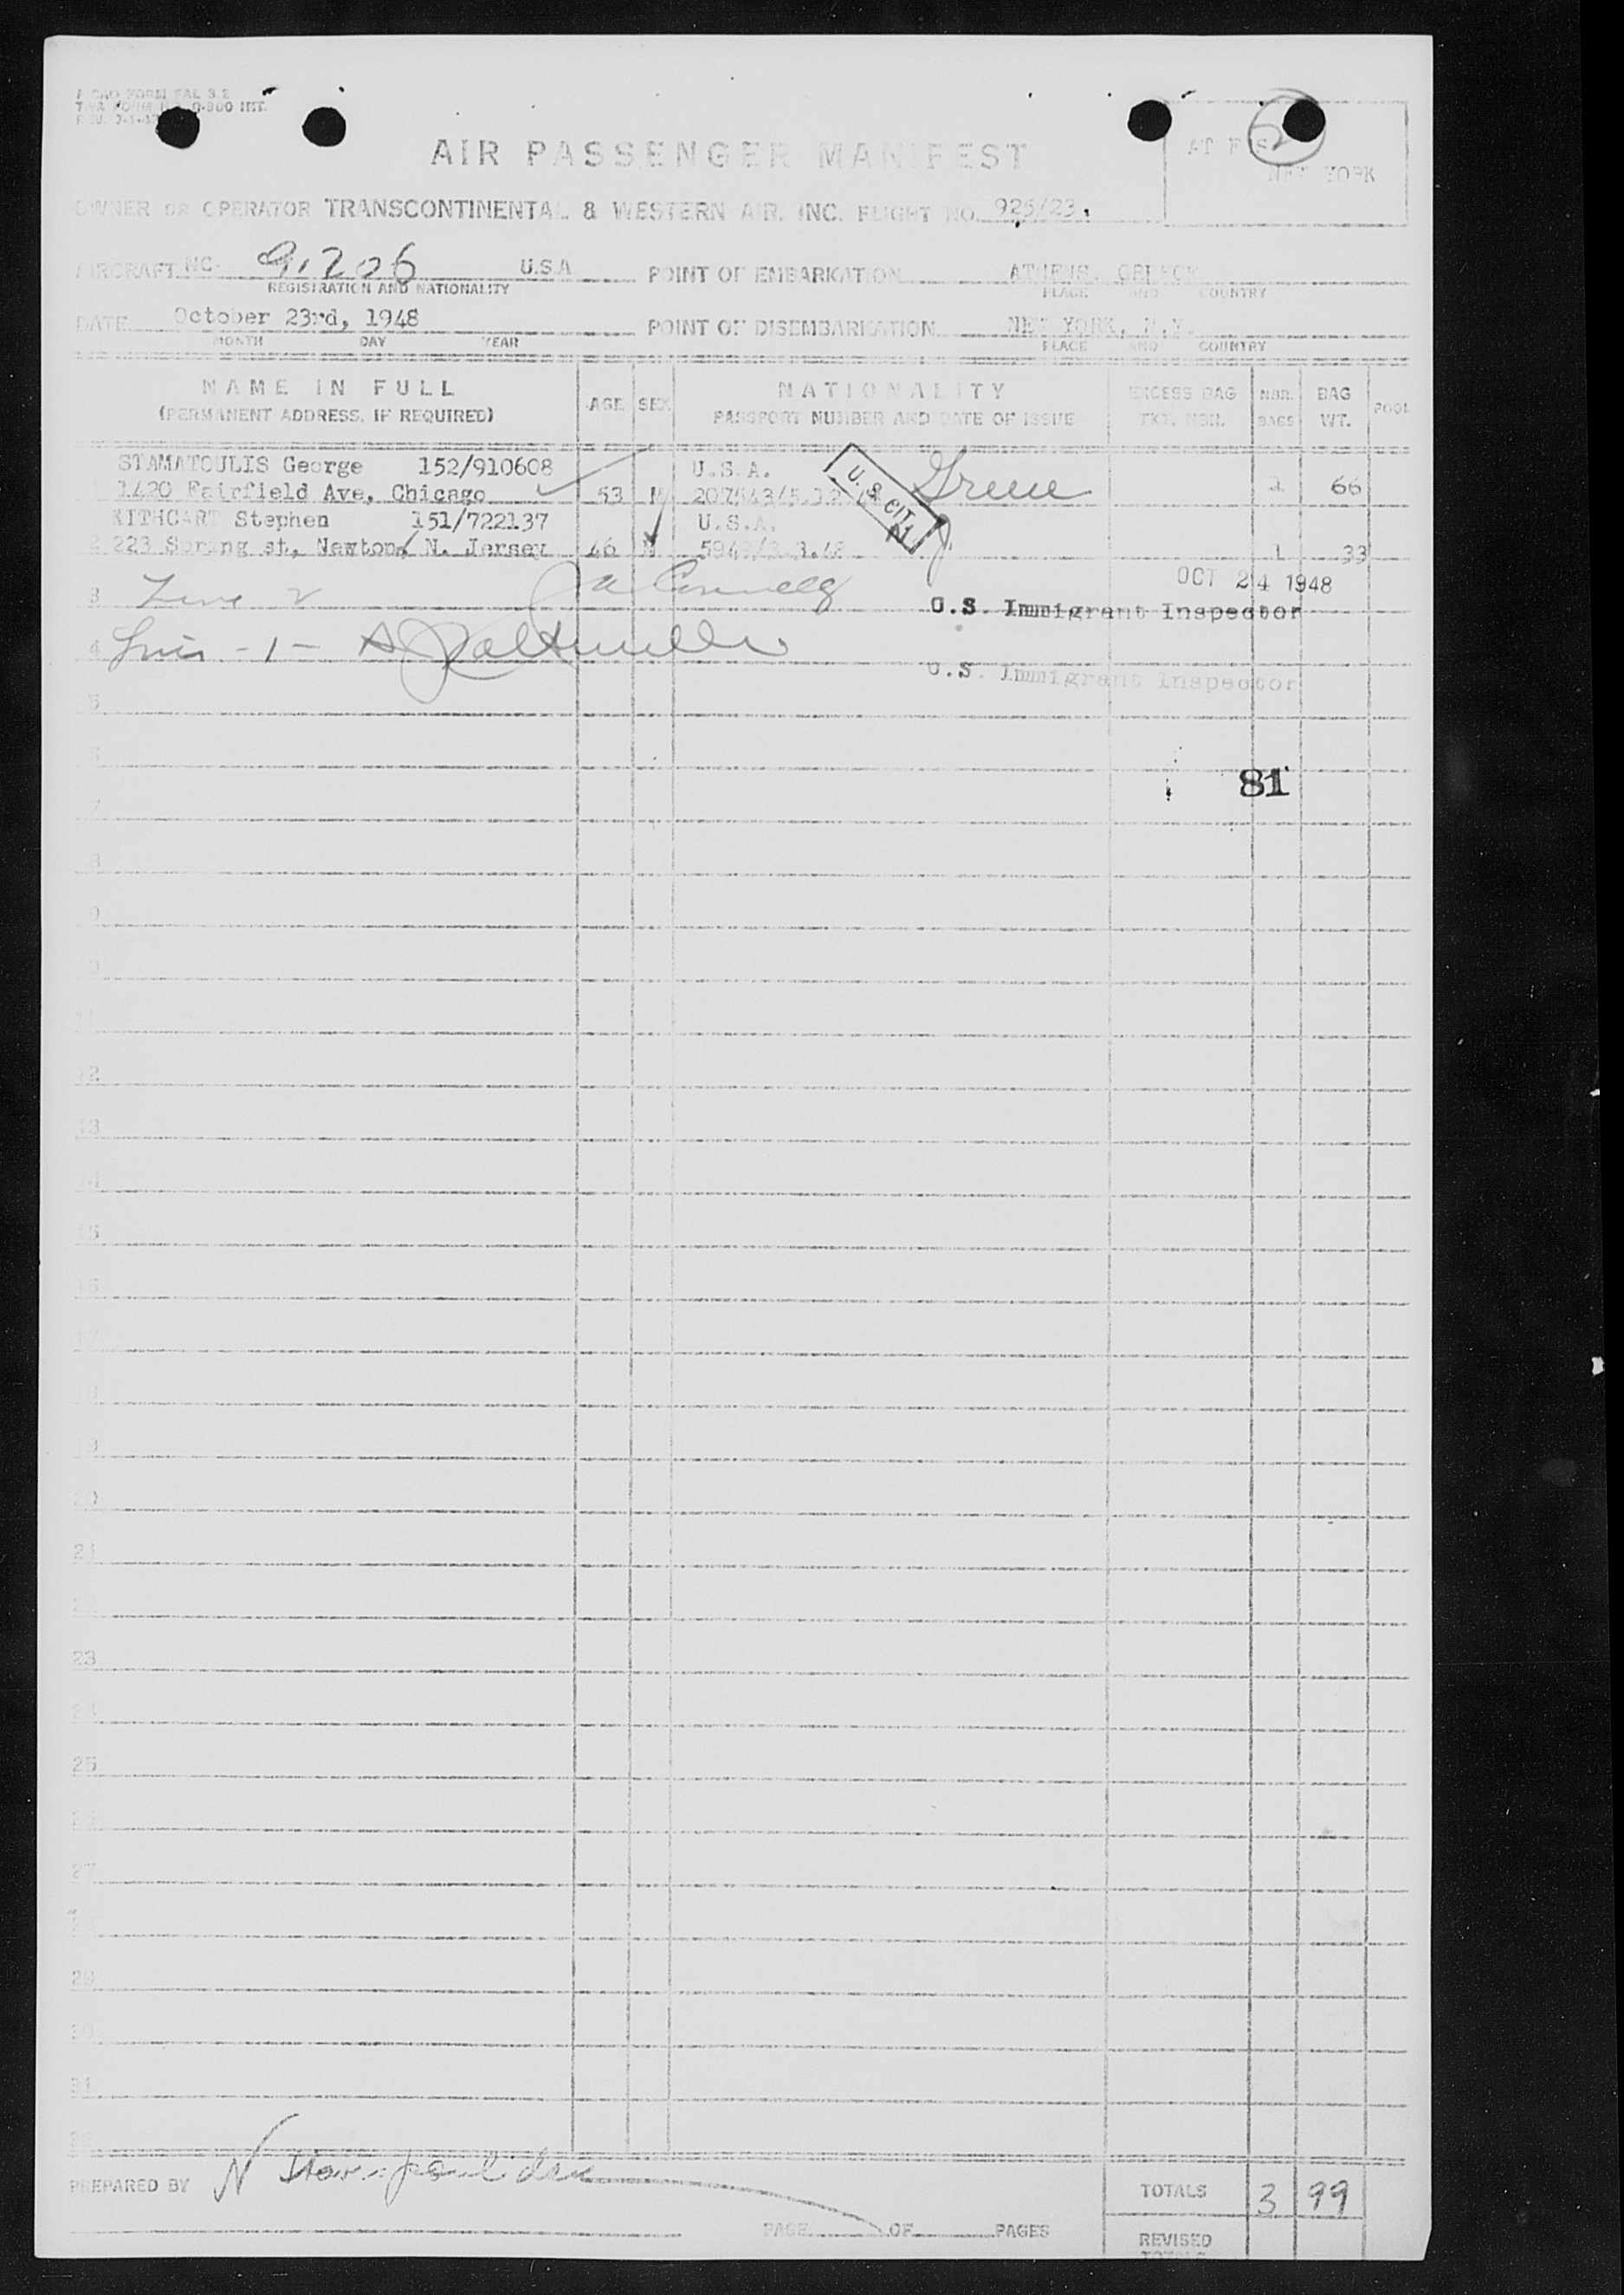 AIR PASSENGER MANIFEST
NEW YORK
OWNER OR OPERATOR TRANSCONTINENTAL & WESTERN AIR, INC. FLIGHT NO. 925/23
AIRCRAFT NC- 91206 U.S.A POINT OF EMBARKATION ATHENS, GREECE
REGISTRATION AND NATIONALITY PLACE AND COUNTRY
DATE October 23rd, 1948 POINT OF DISEMBARKATION NEW YORK, N.Y.
MONTH DAY YEAR PLACE AND COUNTRY
NAME IN FULL AGE SEX NATIONALITY EXCESS BAG NBR. BAG POOL
(PERMANENT ADDRESS, IF REQUIRED) PASSPORT NUMBER AND DATE OF ISSUE TKT. NBR. BAGS WT.
STAMATOULIS George 152/910608 U.S.A.
1420 Fairfield Ave, Chicago 53 M 66
KITHCART Stephen 151/722137 U.S.A.
2 223 Spring st, Newton, N. Jersey 46 M 1 33
U. S. CIT.
OCT 24 1948
3
U.S. Immigrant Inspector
4
U.S. Immigrant Inspector
5
6
81
7
8
9
10
11
12
13
14
15
16
17
18
19
20
21
22
23
24
25
26
27
28
29
30
31
PREPARED BY N TOTALS 3 99
PAGE OF PAGES REVISED
TOTALS